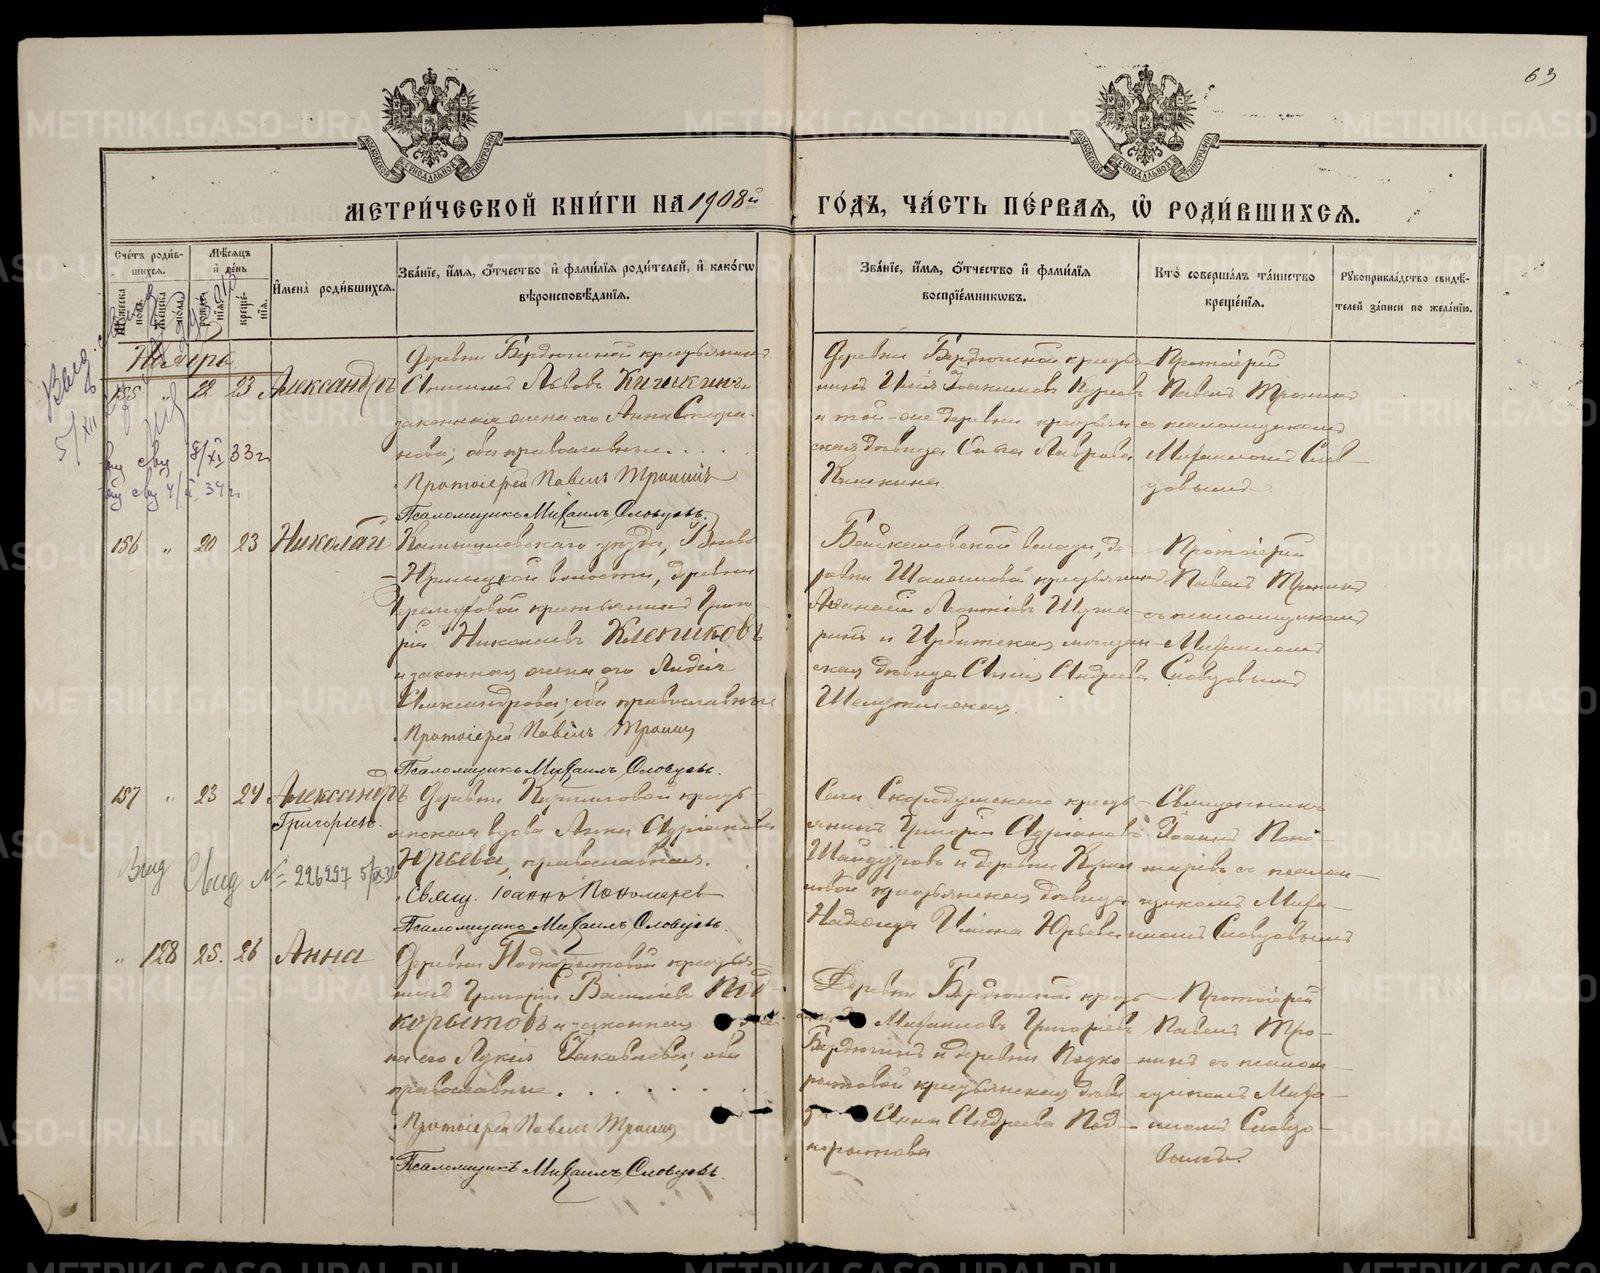 63
МЕТРИ́ЧЕСКОЙ КНИ́ГИ НА 1908й ГО́ДЪ, ЧА́СТЬ ПЕ́РВАѦ, Ѡ҆ РОДИ́ВШИХСѦ.
Сче́тъ роди́вшихсѧ.
Мꙋ́жеска по́ла.
Же́нска по́ла.
Мѣ́сѧцъ и҆ де́нь
рожде́нїѧ.
креще́нїѧ.
И҆мена̀ роди́вшихсѧ.
Зва́нїе, и҆́мѧ, ѻ҆́тчество и҆ фами́лїѧ роди́телей, и҆ како́гѡ
вѣроисповѣ́данїѧ.
Зва́нїе, и҆́мѧ, ѻ҆́тчество и҆ фами́лїѧ
воспрїе́мникѡвъ.
Кто̀ соверша́лъ та́инство
креще́нїѧ.
Рꙋкоприкла́дство свидѣ́-
телей за́писи по жела́нїю.
Ноябрь
155 " 22 23 Александръ
Деревни Бердюгиной крестьянинъ
Львовъ
законная жена его Анна Стефа-
нова; оба православные.
Протоіерей Павелъ Тронинъ
Псаломщикъ Михаилъ Словцовъ.
Деревни Бердюгиной крестья-
нинъ
и той-же деревни крестьян-
ская дѣвица Лаврова
Протоіерей
Павелъ Тронинъ
съ псаломщикомъ
Михаиломъ Слов-
цовымъ
8/XI 33г
34г.
156 " 20 23 Николай
Камышловскаго уѣзда,
Юрмыцкой волости, деревни
Черемуховой крестьянинъ Григо-
рій Николаевъ Клепиковъ
и законная жена его Лидія
Александрова; оба православные
Протоіерей Павелъ Тронинъ
Псаломщикъ Михаилъ Словцовъ.
волости, де-
ревни крестьянинъ
Леонтіевъ
и Ирбитская мѣщан-
ская дѣвица Анна Андреева
Протоіерей
Павелъ Тронинъ
съ псаломщикомъ
Михаиломъ
Словцовымъ
157 " 23 24 Александръ
Григоріевъ.
Деревни Кирилловой кресть-
янская вдова Анна Адріанова
Юрьева, православная.
Свящ. Іоаннъ Пономаревъ
Псаломщикъ Михаилъ Словцовъ.
Села Скородумскаго кресть-
янинъ Григорій Адріановъ
Шайдуровъ и деревни Кирил-
ловой крестьянская дѣвица
Надежда Юрьева
Священникъ
Іоаннъ Поно-
маревъ съ псалом-
щикомъ Миха-
иломъ Словцовымъ
Выд Свид № 226297
" 128 25. 26 Анна
Деревни Подкорытовой крестья-
нинъ Григорій Василіевъ Под-
корытовъ и законная же-
на его Лукія Іаковлева; оба
православные.
Протоіерей Павелъ Тронинъ
Псаломщикъ Михаилъ Словцовъ.
Деревни Бердюгиной кресть-
Михаиловъ Григорьевъ
Бердюгинъ и деревни Подко-
рытовой крестьянская дѣви-
Анна Андреева Под-
корытова
Протоіерей
Павелъ Тро-
нинъ съ псалом-
щикомъ Миха-
иломъ Словцо-
вымъ.
METRIKI.GASO-URAL.RU